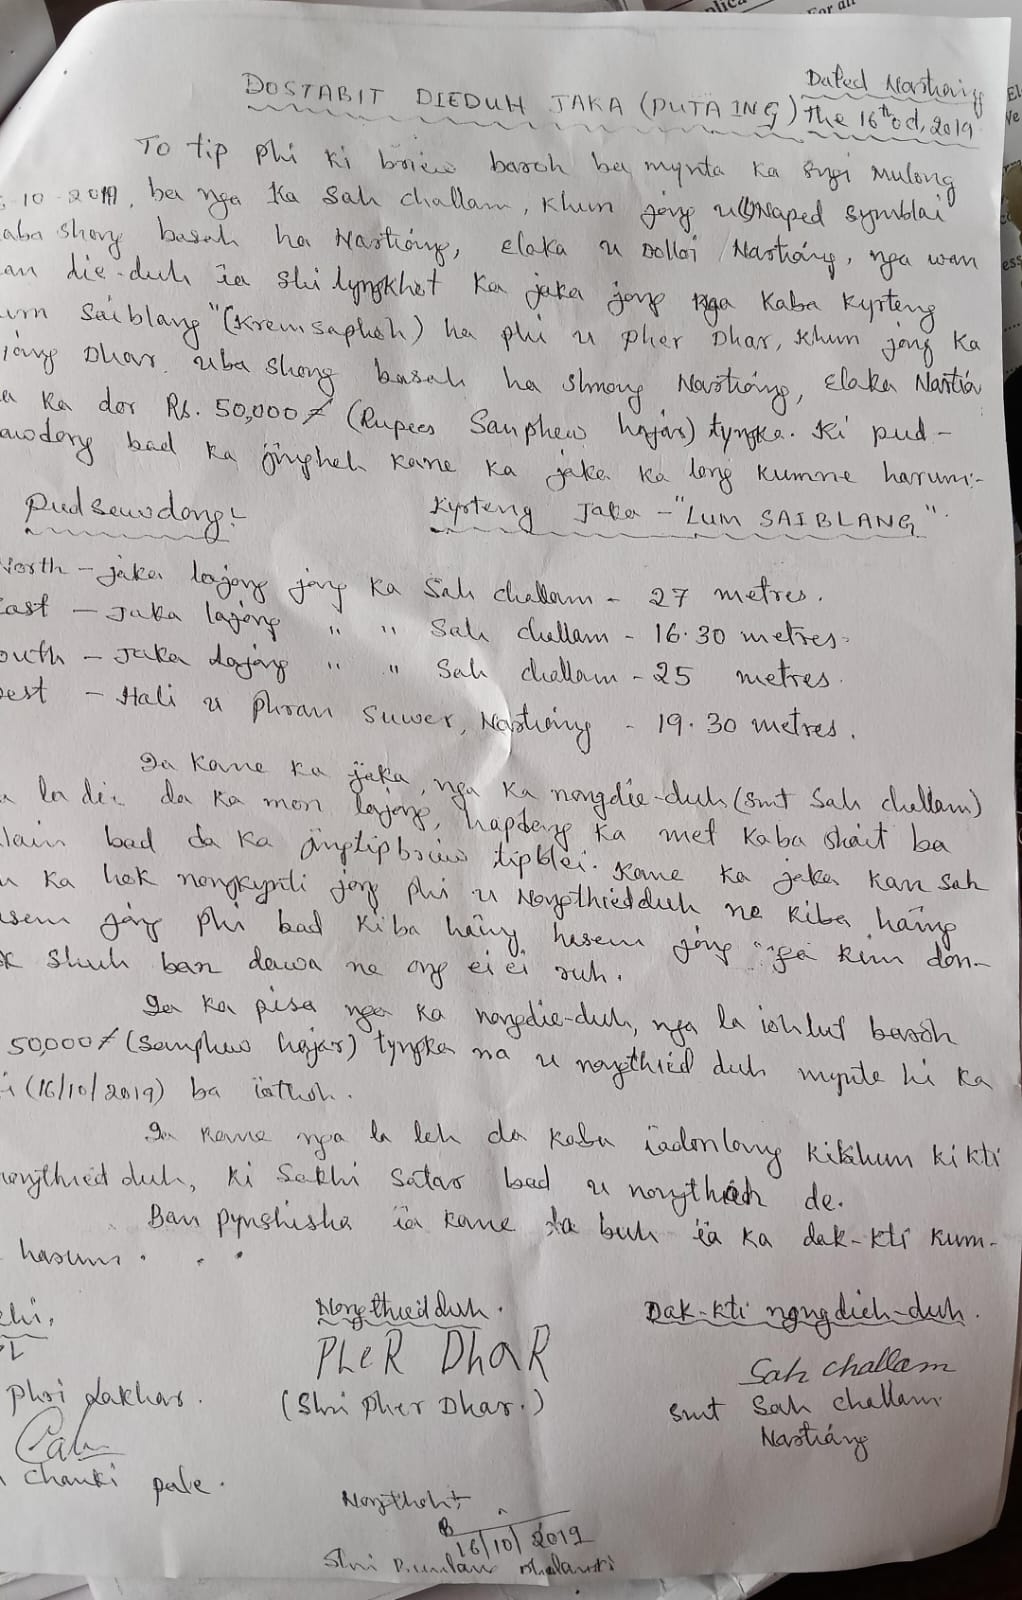 Dated Nartiang
DOSTABIT DIEDUH JAKA (PUTA ING) the 16th oct, 2019
To tip phi ki briew baroh ba mynta ka sngi Mulong
-10-2019, ba nga ka Sah challam, khun jong u(L)Naped symblai
aba shong basah ha Nartiang, elaka u Dolloi Nartiang, nga wan
an die-duh ia shi lyngkhot ka jaka jong nga kaba kyrteng
um Saiblang "(Krem saphoh) ha phi u Pher Dhar, khun jong ka
iang Dhar uba shong basah ha shnong Nartiang, elaka Nartia
a ka dor Rs. 50,000/= (Rupees Sanphew hajar) tyngka. Ki pud-
awdong bad ka jingheh kane ka jaka ka long kumne harum:-
Pudsawdong:-
Kyrteng Jaka - "LUM SAIBLANG".
North - jaka lajong jong ka Sah challam - 27 metres.
East - Jaka lajong " " Sah challam - 16.30 metres.
outh - Jaka lajong " " Sah challam - 25 metres.
est - Hali u Phran Suwer, Nartiang - 19.30 metres.
Ia kane ka jaka, nga ka nongdie-duh (smt Sah challam)
la die da ka mon lajong, hapdeng ka met kaba khait ba
lain bad da ka jingtipbriew tipblei. Kane ka jaka kan sah
ka hok nongkynti jong phi u Nongthiedduh ne kiba haing
sem jong phi bad kiba haing hasem jong nga kim don-
k shuh ban dawa ne ong ei ei ruh.
Ia ka pisa nga ka nongdie-duh, nga la ioh lut baroh
50,000/= (Sanphew hajar) tyngka na u nongthied duh mynta hi ka
i (16/10/2019) ba iathoh.
Ia kane nga la leh da kaba iadonlang kikhun ki kti
nongthied duh, ki Sakhi Satar bad u nongthoh de.
Ban pynshisha ia kane la buh ia ka dak-kti kum-
harum.
Nongthiedduh.
Dak-kti nongdieh-duh.
PHER DHAR
Sah challam
Phri Lakhar.
(Shri Pher Dhar.)
smt Sah challam
Nartiang
Chanki pale.
Nongthoh:-
16/10/2019
Shri